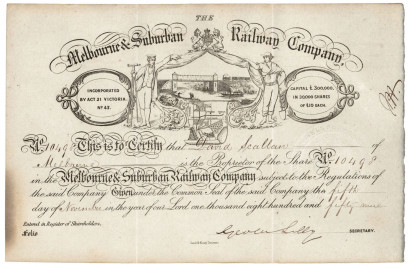 THE
Melbourne & Suburban Railway Company.
INCORPORATED
BY ACT 21 VICTORIA,
No 42.
CAPITAL £ 300,000,
IN 30,000 SHARES
OF £10 EACH.
No 10498 This is to Certify that David Scallan of
is the Proprietor of the Share No 10498
in the Melbourne & Suburban Railway Company, subject to the Regulations of
the said Company Given under the Common Seal of the said Company, the fifth
day of November in the year of our Lord, one thousand eight hundred and fifty nine
Entered in Register of Shareholders,
Folio
SECRETARY.